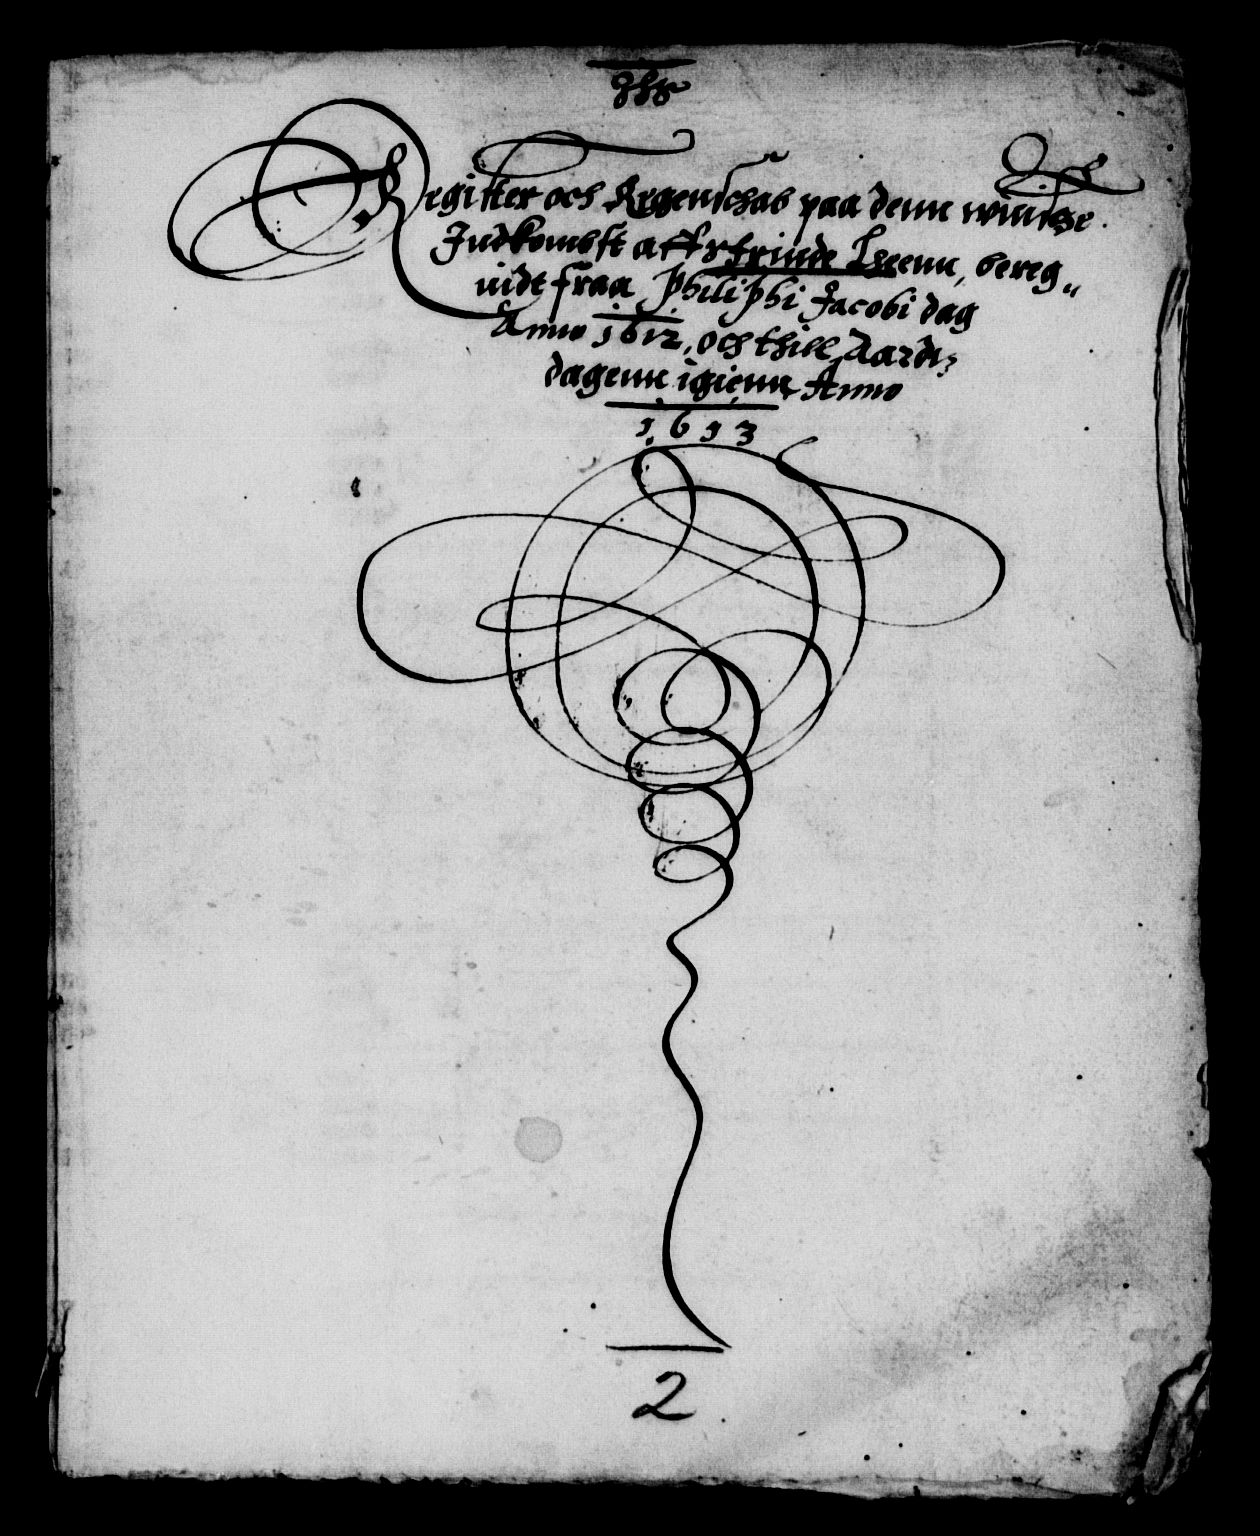 Register och Regennschab paa denn wiuisze
Indkombst aff Trinde Leenn, bereg„
nidt fraa Philiphi Jacobi dag
Anno 1612, och thill Aars
dagenn igienn Anno
1613
2